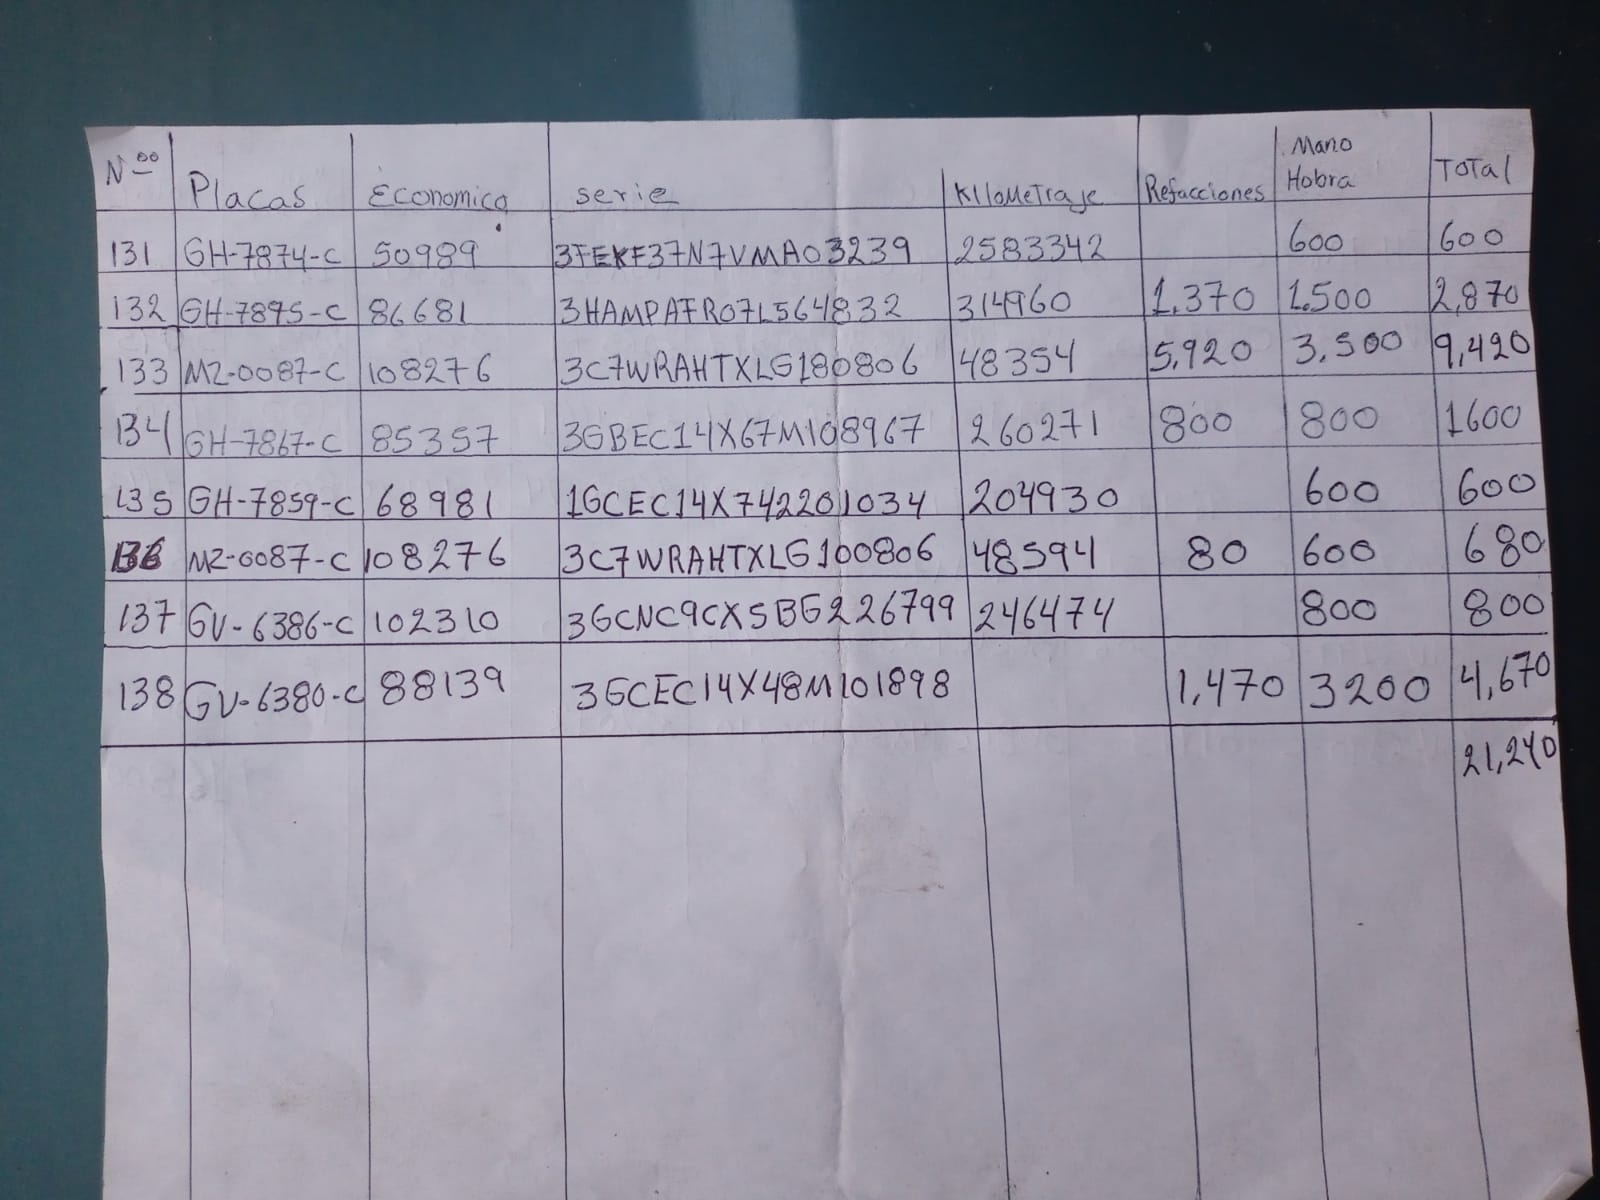 Nº⁰⁰ Placas Economico serie Kilometraje Refacciones Mano Hobra Total
131 GH-7874-C 50989 3FEKF37N7VMA03239 2583342 600 600
132 GH-7895-C 86681 3HAMPAFR07L564832 314960 1,370 1.500 2,870
133 MZ-0087-C 108276 3C7WRAHTXLG180806 48354 5,920 3,500 9,420
134 GH-7867-C 85357 3GBEC14X67M108967 260271 800 800 1600
135 GH-7859-C 68981 1GCEC14X742201034 204930 600 600
136 MZ-0087-C 108276 3C7WRAHTXLG100806 48594 80 600 680
137 GV-6386-C 102310 3GCNC9CX5BG226799 246474 800 800
138 GV-6380-C 88139 3GCEC14X48M101898 1,470 3200 4,670
21,240